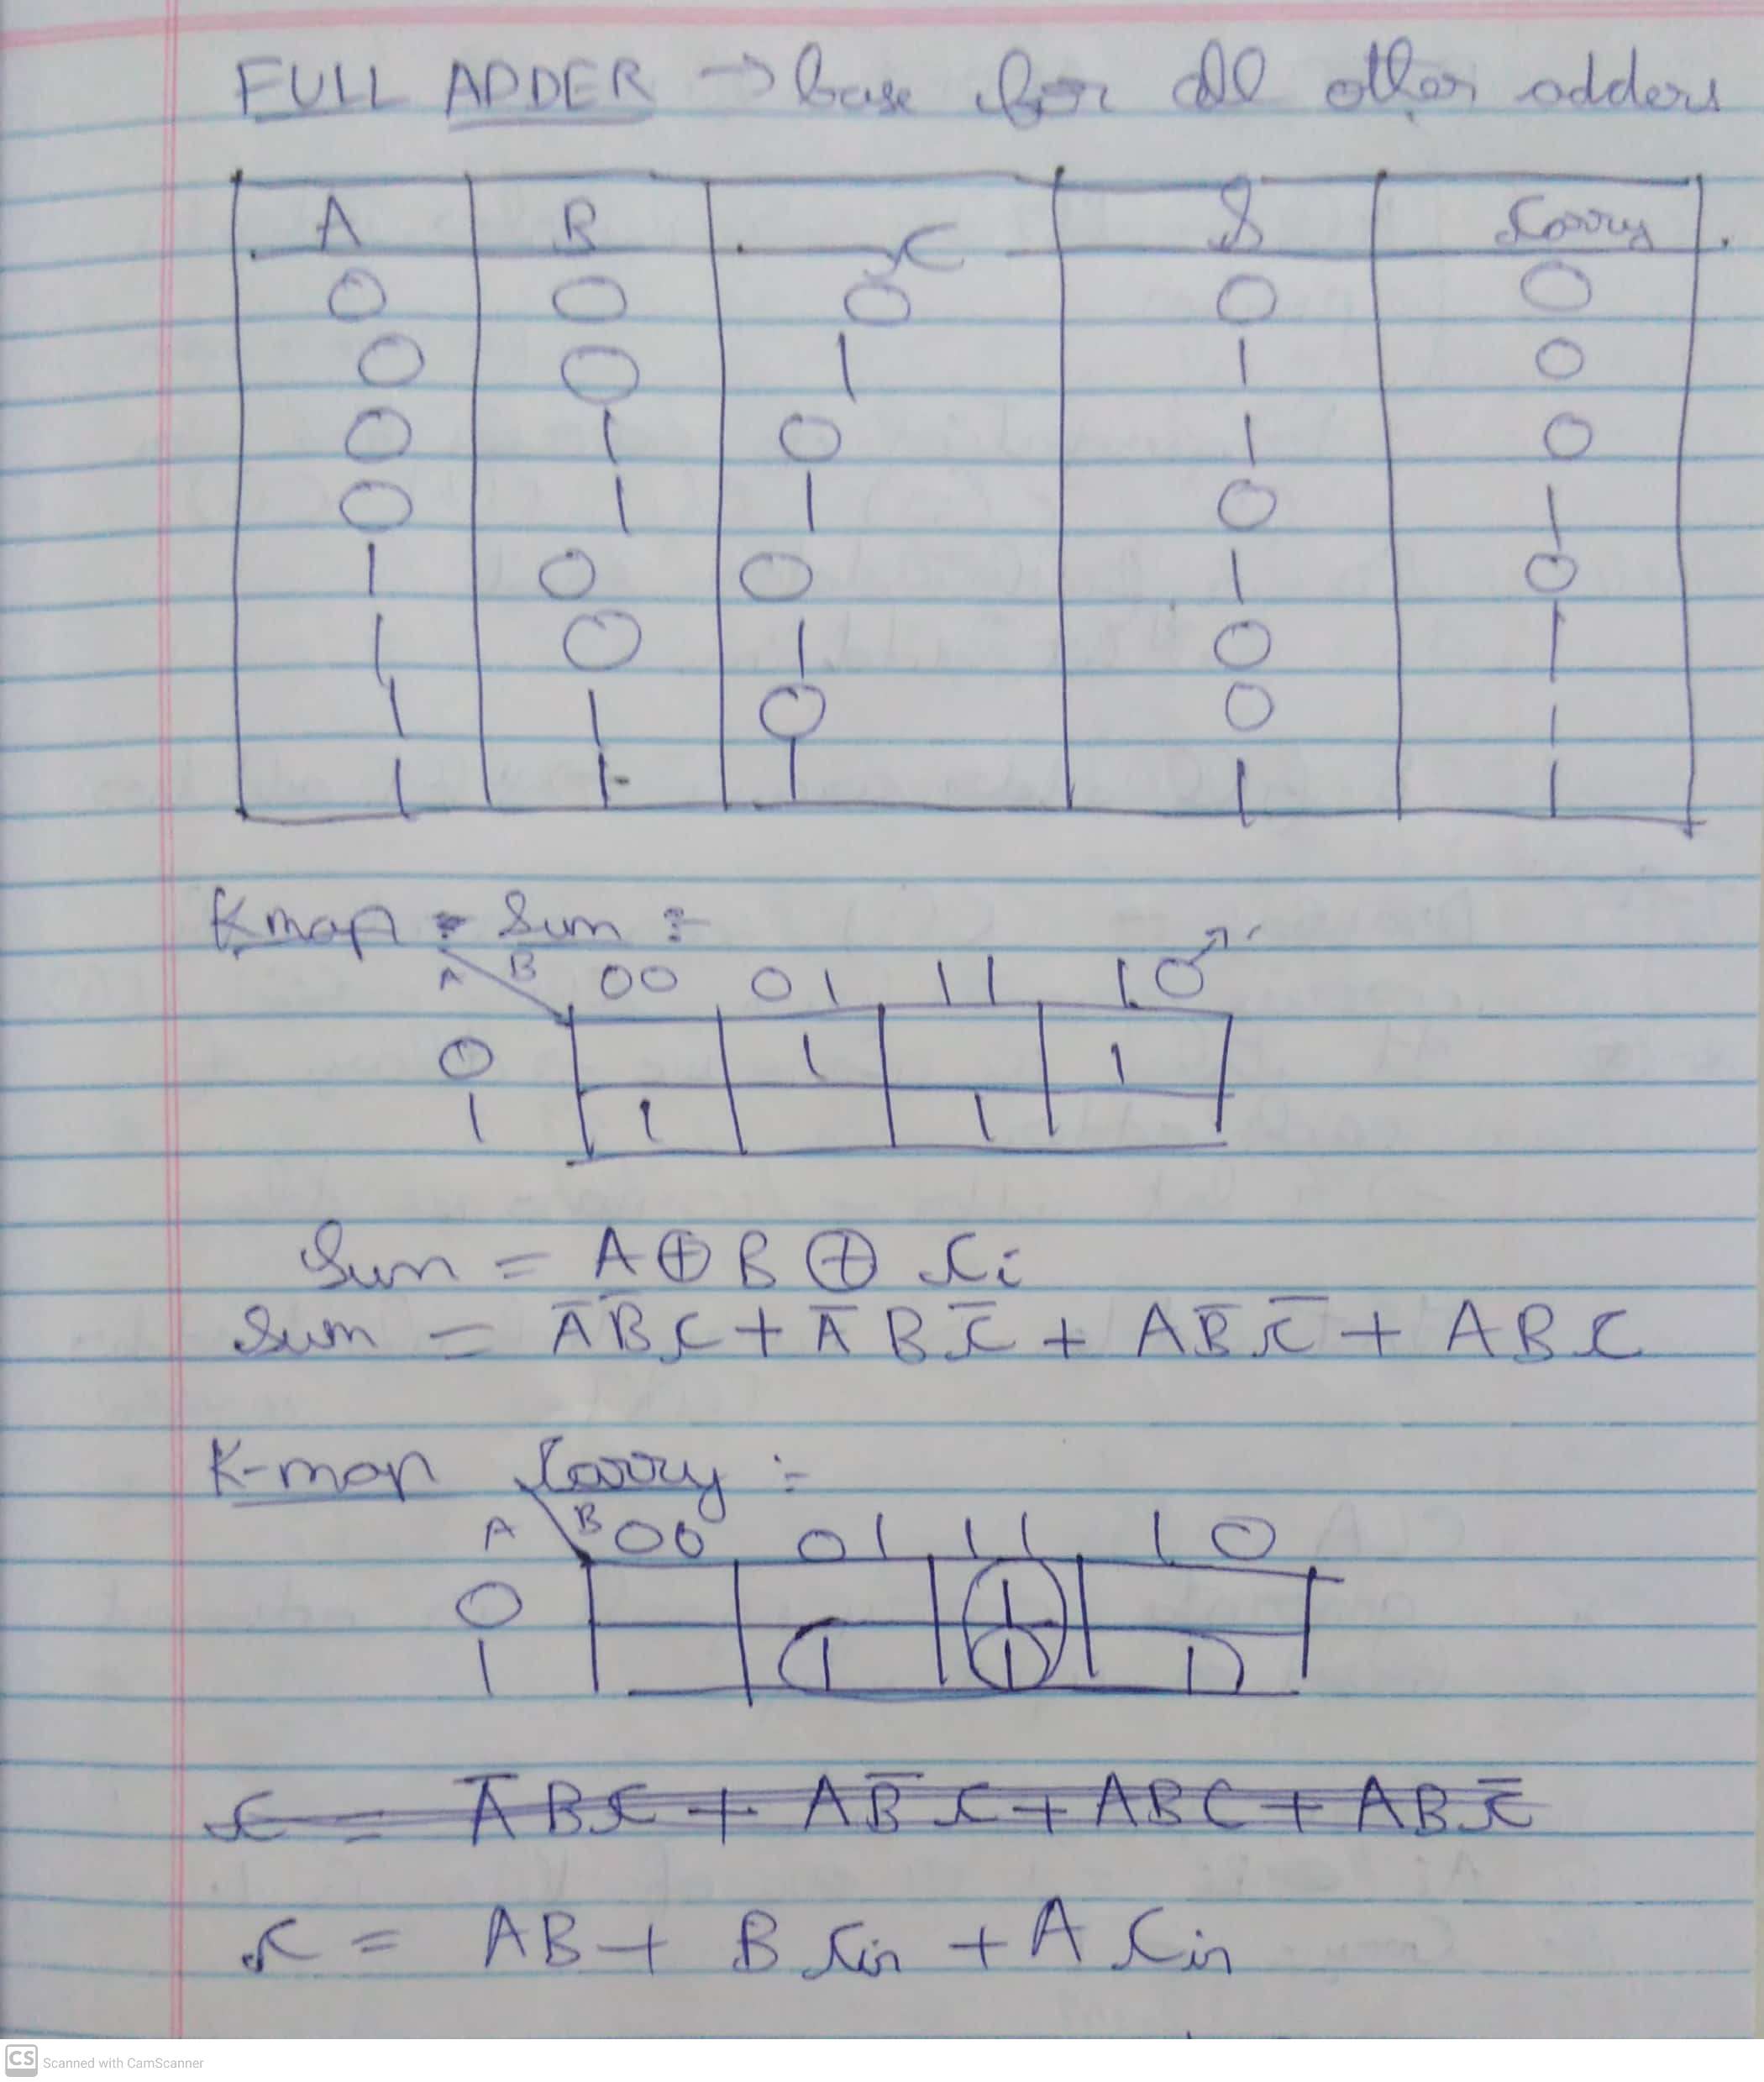 FULL ADDER → base for all other adders
A B C S Carry
0 0 0 0 0
0 0 1 1 0
0 1 0 1 0
0 1 1 0 1
1 0 0 1 0
1 0 1 0 1
1 1 0 0 1
1 1 1 1 1
Kmap - Sum :-
A B 00 01 11 10
0 1 1
1 1 1
Sum = A ⊕ B ⊕ Ci
Sum = A̅ B̅ C + A̅ B C̅ + A B̅ C̅ + A B C
K-map Carry :-
A B 00 01 11 10
0 1
1 1 1 1
C = A̅ B C + A B̅ C + A B C + A B C̅
C = AB + B Cin + A Cin
CS Scanned with CamScanner